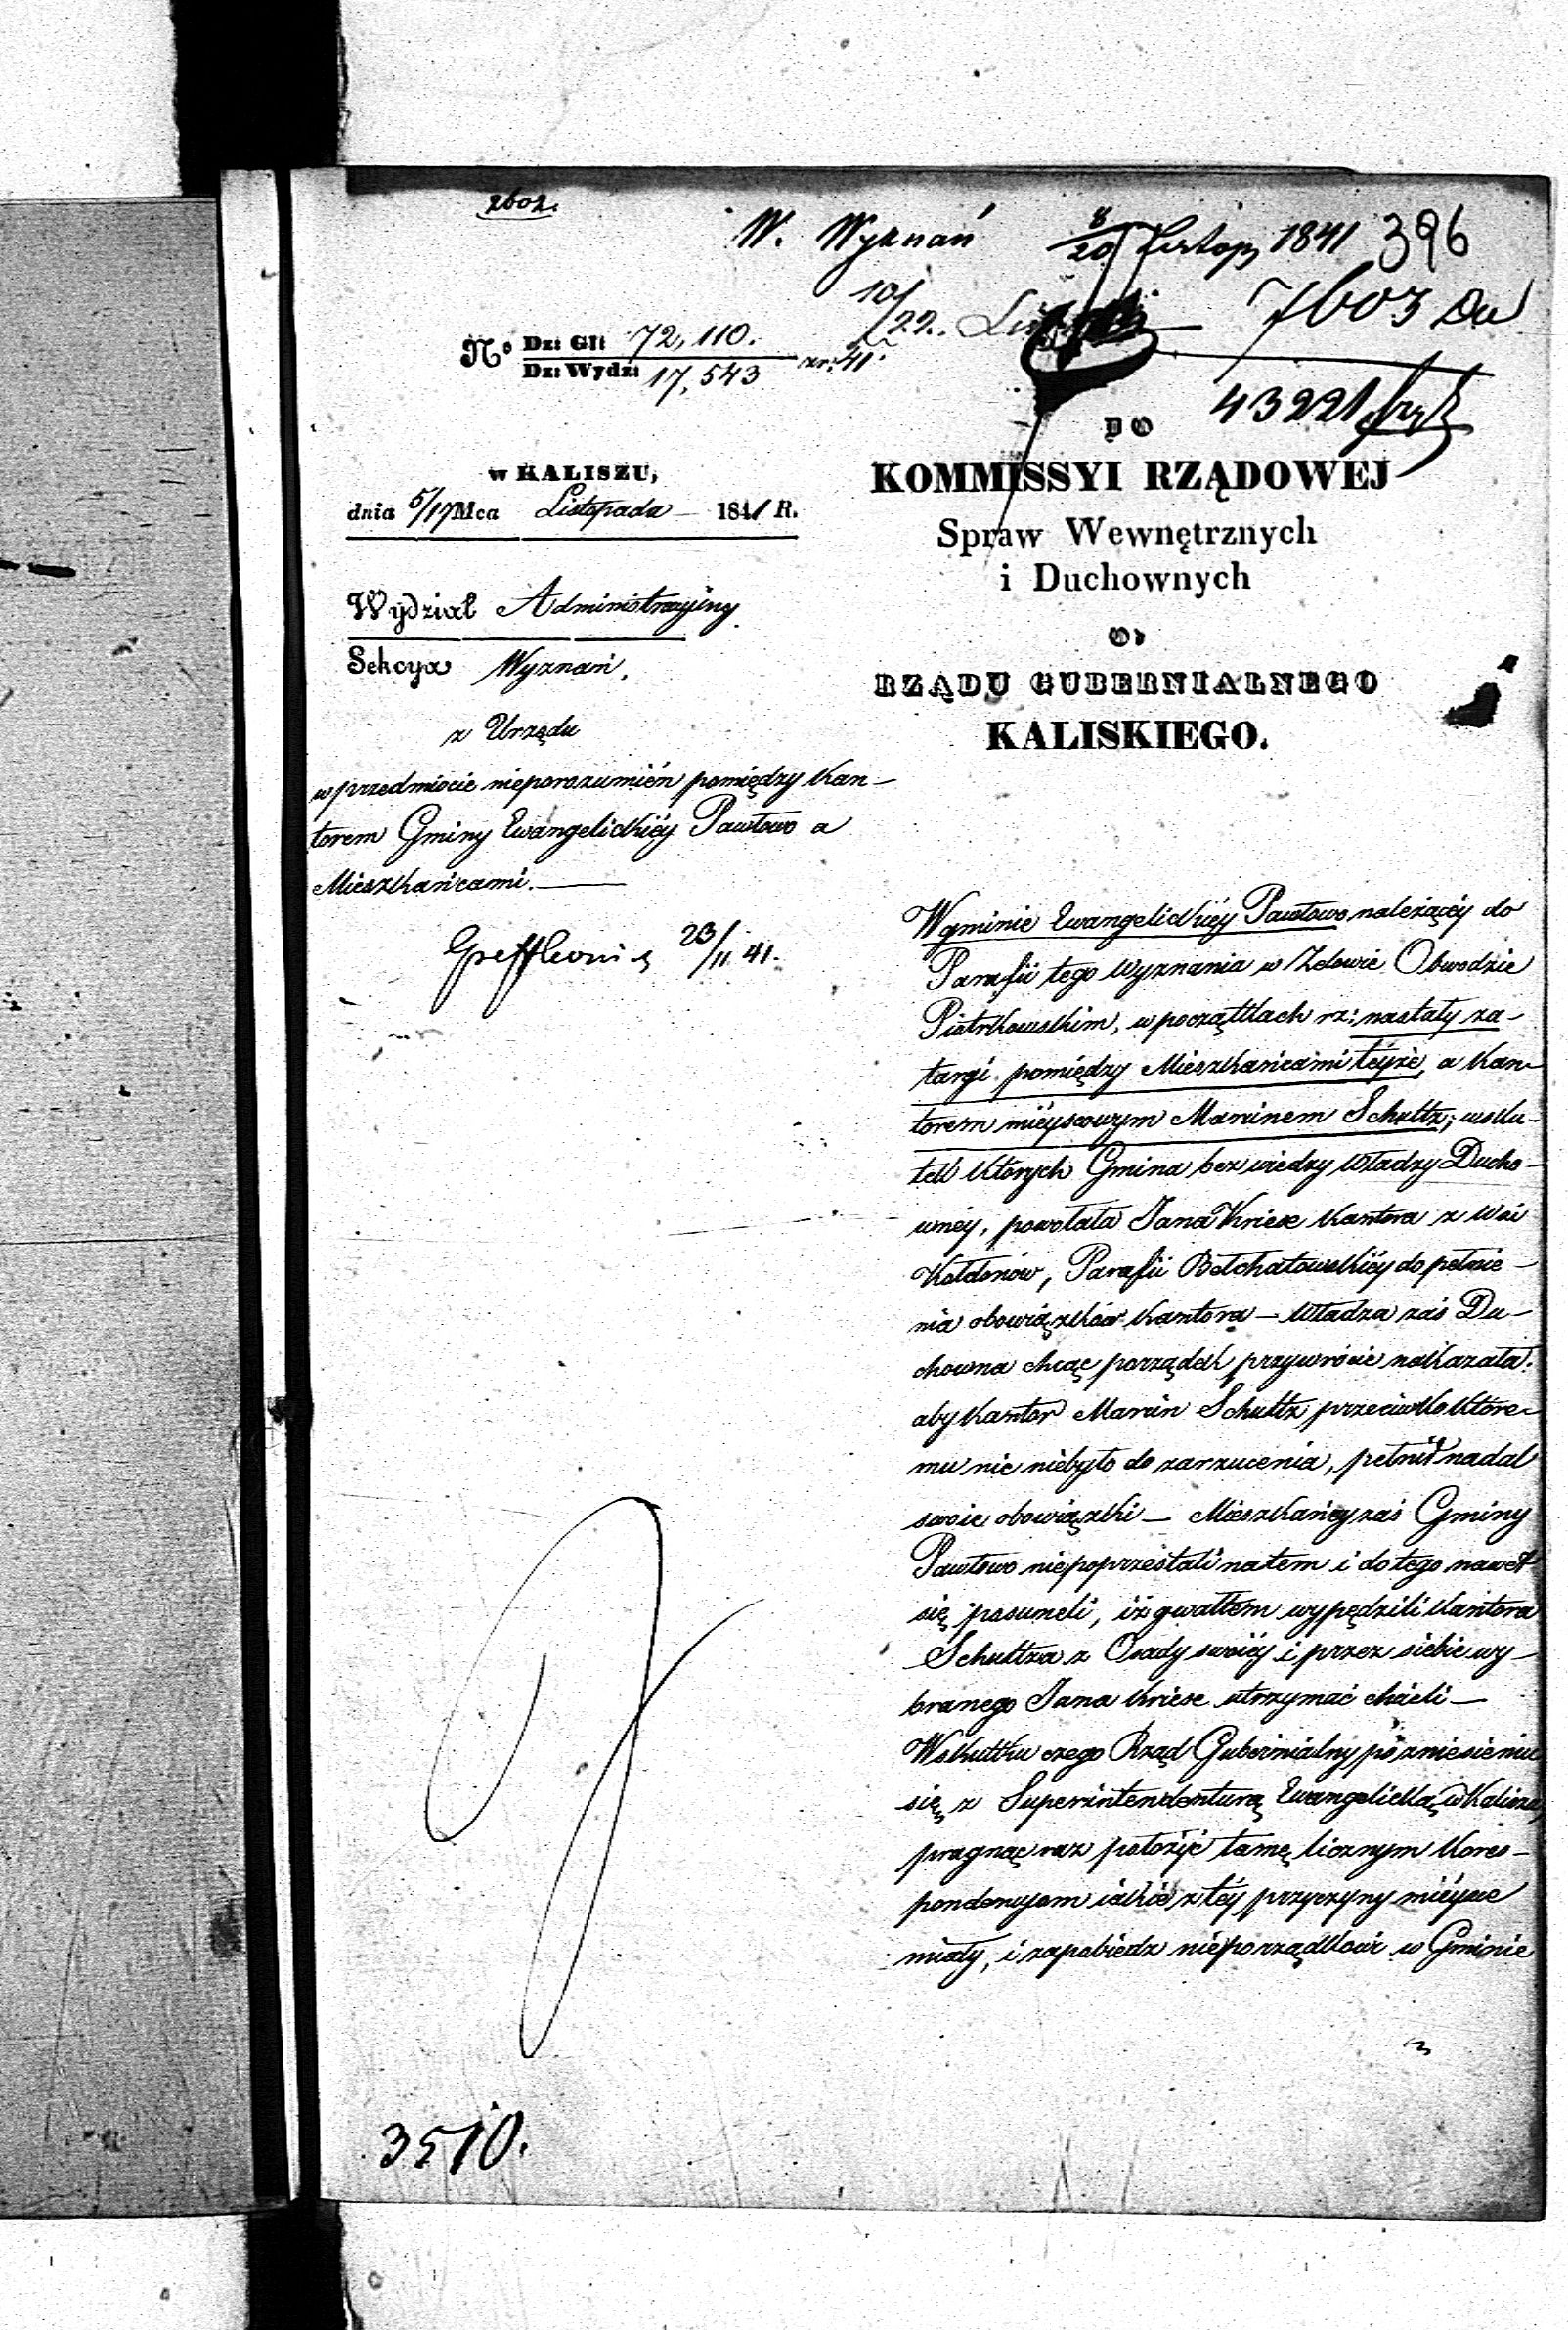 2602.
W. Wyznań 8/20 Listop 1841 396
10/22. 7603 Du
No Dz: Gł: 72,110.
Dz: Wydz: 17,543 zr: 41.
43221
DO
w KALISZU,
KOMMISSYI RZĄDOWEJ
dnia 5/17 Mca Listopada 1841 R.
Spraw Wewnętrznych
i Duchownych
Wydział Administracyiny
Sekcya Wyznań.
RZĄDU GUBERNIALNEGO
KALISKIEGO.
z Urzędu
w przedmiocie nieporozumień pomiędzy Kan-
torem Gminy Ewangelickiéy Pawłowo a
Mieszkańcami.
23/11 41.
W gminie Ewangelickiéy Pawłowo należącéy do
Parafii tego wyznania w Zelowie Obwodzie
Piotrkowskim, w początkach rz: nastały za-
targi pomiędzy Mieszkańcami téyże, a Kan-
torem mieyscowym Marcinem Schultz; wsku-
tek których Gmina bez wiedzy Władzy Ducho-
wnéy, powołała Jana Kriese Kantora z Wsi
Kałdonów, Parafii Bełchatowskiéy do pełnie-
nia obowiązków Kantora — Władza zaś Du-
chowna chcąc porządek przywrócić nakazała:
aby Kantor Marcin Schultz przeciwko które-
mu nic niebyło do zarzucenia, pełnił nadal
swoie obowiązki — Mieszkańcy zaś Gminy
Pawłowo niepoprzestali natem i do tego nawet
się posuneli, iż gwałtem wypędzili Kantora
Schultza z Osady swoiéy i przez siebie wy-
branego Jana Kriese utrzymać chcieli —
Wskutku czego Rząd Gubernialny po zniesieniu
się z Superintendenturą Ewangelicką w Kaliszu,
pragnąc raz położyć tamę licznym Kores-
pondencyom iakie z téy przyczyny mieysce
miały, i zapobiedz nieporządkowi w Gminie
3510.